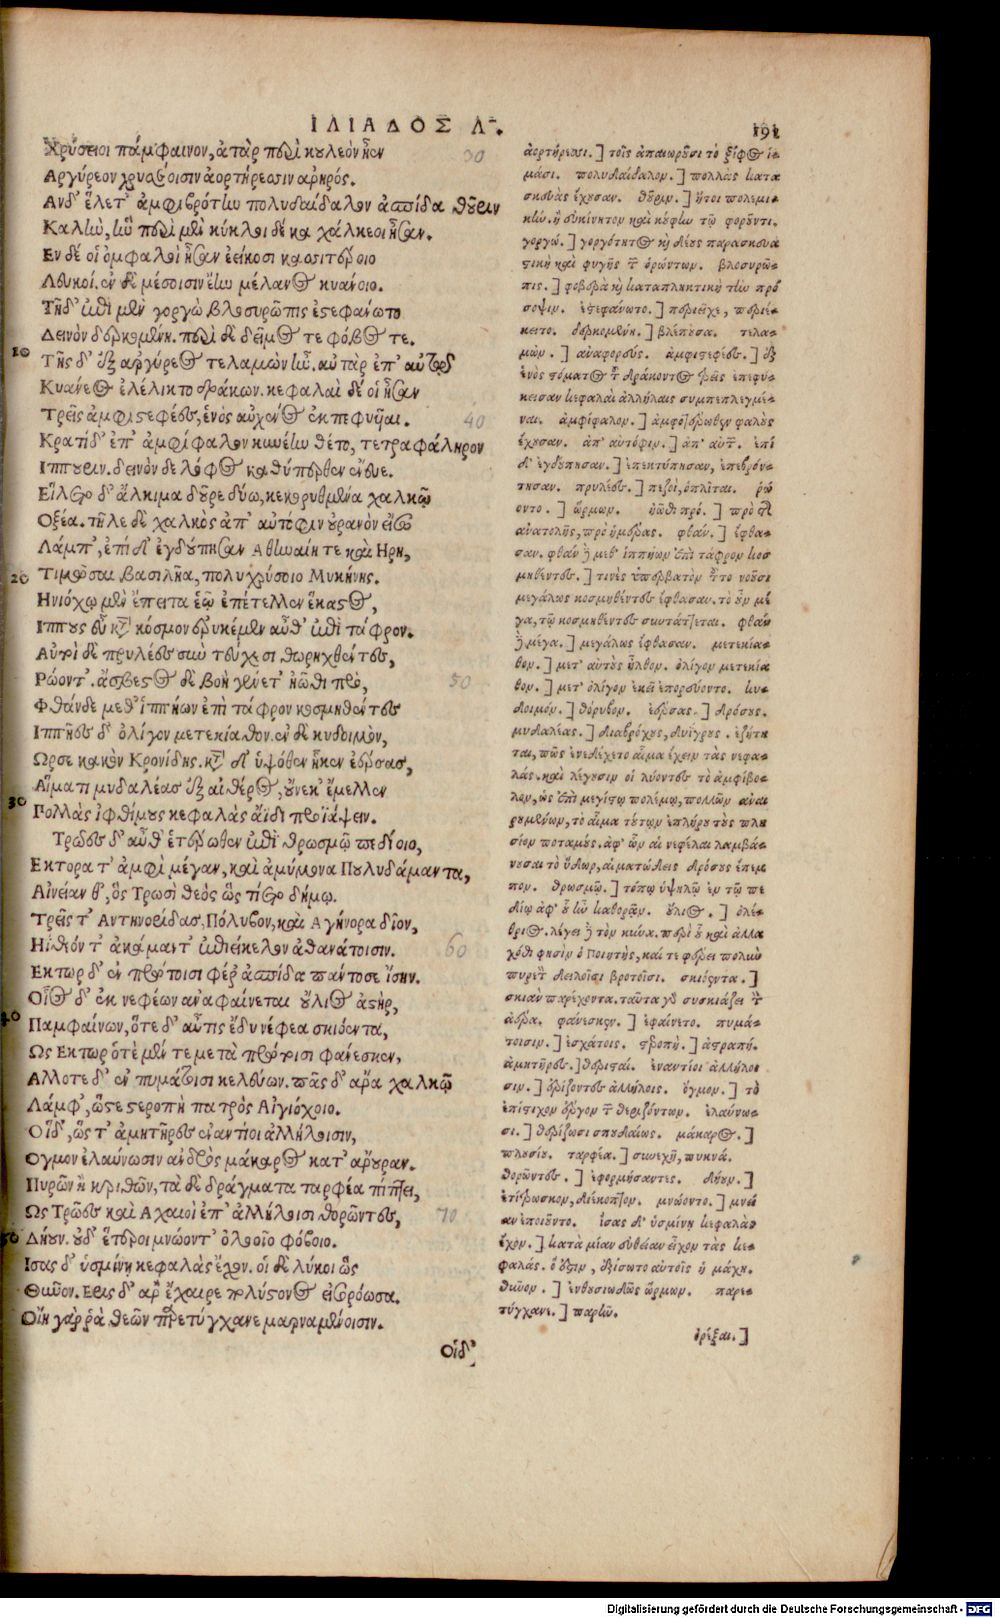 ΙΛΙΑΔΟΣ Λ.
191
Χρύσειοι πάμφαινον, ἀτὰρ περὶ κουλεὸν ἦεν
30
Αργύρεον χρυσέοισιν ἀορτήρεσιν ἀρηρός.
Ανδ' ἕλετ' ἀμφιβρότην πολυδαίδαλον ἀσπίδα θοῦριν
Καλὴν, ἣν περὶ μὲν κύκλοι δέκα χάλκεοι ἦσαν.
Εν δέ οἱ ὀμφαλοὶ ἦσαν ἐείκοσι κασσιτέροιο
Λευκοί. ἐν δὲ μέσοισιν ἔην μέλανος κυάνοιο.
Τῇ δ' ἐπὶ μὲν γοργὼ βλοσυρῶπις ἐστεφάνωτο
Δεινὸν δερκομένη. περὶ δὲ δεῖμός τε φόβος τε.
10
Τῆς δ' ἐξ ἀργύρεος τελαμὼν ἦν. αὐτὰρ ἐπ' αὐτοῦ
Κυάνεος ἐλέλικτο δράκων. κεφαλαὶ δέ οἱ ἦσαν
Τρεῖς ἀμφιστεφέες, ἑνὸς αὐχένος ἐκπεφυῆαι.
40
Κρατὶ δ' ἐπ' ἀμφίφαλον κυνέην θέτο, τετραφάληρον
Ιππουριν. δεινὸν δὲ λόφος καθύπερθεν ἔνευε.
Εἵλετο δ' ἄλκιμα δοῦρε δύω, κεκορυθμένα χαλκῷ
Οξέα. τῆλε δὲ χαλκὸς ἀπ' αὐτόφιν οὐρανὸν εἴσω
Λάμπ', ἐπὶ δ' ἐγδούπησαν Αθηναίη τε καὶ Ηρη,
20
Τιμῶσαι βασιλῆα, πολυχρύσοιο Μυκήνης.
Ηνιόχῳ μὲν ἔπειτα ἑῷ ἐπέτελλεν ἕκαστος,
Ιππους εὖ κατὰ κόσμον ἐρυκέμεν αὖθ' ἐπὶ τάφρον.
Αὐτοὶ δὲ πρυλέες σὺν τεύχεσι θωρηχθέντες,
Ρώοντ'. ἄσβεστος δὲ βοὴ γένετ' ἠῶθι πρὸ,
50
Φθάν δὲ μεθ' ἱππήων ἐπὶ τάφρον κοσμηθέντες
Ιππῆες δ' ὀλίγον μετεκίαθον. ἐν δὲ κυδοιμὸν,
Ωρσε κακὸν Κρονίδης. κατὰ δ' ὑψόθεν ἧκεν ἐέρσας,
Αἵματι μυδαλέας ἐξ αἰθέρος, οὕνεκ' ἔμελλεν
30
Πολλὰς ἰφθίμους κεφαλὰς ἄϊδι προϊάψειν.
Τρῶες δ' αὖθ' ἑτέρωθεν ἐπὶ θρωσμῷ πεδίοιο,
Εκτορα τ' ἀμφὶ μέγαν, καὶ ἀμύμονα Πουλυδάμαντα,
Αἰνείαν θ', ὃς Τρωσὶ θεὸς ὣς τίετο δήμῳ.
Τρεῖς τ' Αντηνορίδας, Πόλυβον, καὶ Αγήνορα δῖον,
Ηΐθεόν τ' ἀκάμαντ' ἐπιείκελον ἀθανάτοισιν.
60
Εκτωρ δ' ἐν πρώτοισι φέρ' ἀσπίδα πάντοσε ἴσην.
Οἷος δ' ἐκ νεφέων ἀναφαίνεται οὔλιος ἀστὴρ,
40
Παμφαίνων, ὅτε δ' αὖτις ἔδυ νέφεα σκιόεντα,
Ως Εκτωρ ὁτὲ μέν τε μετὰ πρώτοισι φάνεσκεν,
Αλλοτε δ' ἐν πυμάτοισι κελεύων. πᾶς δ' ἄρα χαλκῷ
Λάμφ', ὥστε στεροπὴ πατρὸς Αἰγιόχοιο.
Οἱ δ', ὥς τ' ἀμητῆρες ἐναντίοι ἀλλήλοισιν,
Ογμον ἐλαύνωσιν ἀνδρὸς μάκαρος κατ' ἄρουραν.
Πυρῶν ἢ κριθῶν, τὰ δὲ δράγματα ταρφέα πίπτει,
Ως Τρῶες καὶ Αχαιοὶ ἐπ' ἀλλήλοισι θορόντες,
70
50
Δῄουν. οὐδ' ἕτεροι μνώοντ' ὀλοοῖο φόβοιο.
Ισας δ' ὑσμίνη κεφαλὰς ἔχεν. οἱ δὲ λύκοι ὣς
Θῦνον. Ερις δ' ἄρ' ἔχαιρε πολύστονος εἰσορόωσα.
Οἴη γάρ ῥα θεῶν παρετύγχανε μαρναμένοισιν.
Οἱ δ'
ἀορτήρεσι.] τοῖς ἀπαιωροῦσι τὸ ξίφος ἱ-
μάσι. πολυδαίδαλον.] πολλὰς κατα
σκευὰς ἔχουσαν. θοῦριν.] ἤτοι πολεμι-
κὴν. ἢ εὐκίνητον καὶ κούφην τῷ φοροῦντι.
γοργώ.] γοργότητος καὶ δέους παρασκευα
στικὴ καὶ φυγῆς τῶν ὁρώντων. βλοσυρῶ-
πις.] φοβερὰ καὶ καταπληκτικὴ τὴν πρό
σοψιν. ἐστεφάνωτο.] περιεῖχε, περιέ-
κειτο. δερκομένη.] βλέπουσα. τελα-
μὼν.] ἀναφορεύς. ἀμφιστεφέες.] ἐξ
ἑνὸς στόματος τοῦ δράκοντος τρεῖς ἐπεφύ-
κεισαν κεφαλαὶ ἀλλήλαις συμπεπλεγμέ-
ναι. ἀμφίφαλον.] ἀμφοτέρωθεν φαλοὺς
ἔχουσαν. ἀπ' αὐτόφιν.] ἀπ' αὐτῶν. ἐπὶ
δ' ἐγδούπησαν.] ἐπεκτύπησαν, ἐπεβρόν-
τησαν. πρυλέες.] πεζοὶ, ὁπλῖται. ῥώ
οντο.] ὥρμων. ἠῶθι πρό.] πρὸ τῆς
ἀνατολῆς, πρὸ ἡμέρας. φθάν.] ἔφθα-
σαν. φθὰν δὲ μεθ' ἱππήων ἐπὶ τάφρον κοσ
μηθέντες.] τινὲς ὑπερβατὸν τοῦτο νοοῦσι
μεγάλως κοσμηθέντες ἔφθασαν. τὸ οὖν μέ
γα, τῷ κοσμηθέντες συντάττεται. φθὰν
δὲ μέγα.] μεγάλως ἔφθασαν. μετεκία-
θον.] μετ' αὐτοὺς ἦλθον. ὀλίγον μετεκία
θον.] μετ' ὀλίγον ἐκεῖ ἐπορεύοντο. κυ-
δοιμόν.] θόρυβον. ἐέρσας.] δρόσους.
μυδαλέας.] διαβρόχους, διύγρους. ἐζήτη
ται, πῶς ἐνεδέχετο αἷμα ἔχειν τὰς νεφέ-
λας. καὶ λέγουσιν οἱ λύοντες τὸ ἀμφίβο-
λον, ὡς ἐπὶ μεγίστῳ πολέμῳ, πολλῶν ἀναι
ρουμένων, τὸ αἷμα τούτων ἐπλήρου τοὺς πλη
σίον ποταμούς. ἀφ' ὧν αἱ νεφέλαι λαμβά-
νουσαι τὸ ὕδωρ, αἱματώδεις δρόσους ἔπεμ
πον. θρωσμῷ.] τόπῳ ὑψηλῷ ἐν τῷ πε
δίῳ ἀφ' οὗ ἦν καθορᾷν. οὔλιος.] ὀλέ-
θριος. λέγει δὲ τὸν κύνα. περὶ οὗ καὶ ἀλλα
χόθι φησὶν ὁ ποιητής, καί τε φέρει πολλὸν
πυρετὸν δειλοῖσι βροτοῖσι. σκιόεντα.]
σκιὰν παρέχοντα. ταῦτα γὰρ συσκιάζει τὸν
ἀέρα. φάνεσκεν.] ἐφαίνετο. πυμά-
τοισιν.] ἐσχάτοις. στεροπὴ.] ἀστραπή.
ἀμητῆρες.] θερισταί. ἐναντίοι ἀλλήλοι
σιν.] ἐρίζοντες ἀλλήλοις. ὄγμον.] τὸ
ἐπίστιχον ἔργον τῶν θεριζόντων. ἐλαύνω-
σι.] θερίζωσι σπουδαίως. μάκαρος.]
πλουσίου. ταρφέα.] συνεχῆ, πυκνά.
θορόντες.] ἐφορμήσαντες. δῄουν.]
ἐτίτρωσκον, διέκοπτον. μνώοντο.] μνεί
αν ἐποιοῦντο. ἴσας δ' ὑσμίνη κεφαλὰς
ἔχον.] κατὰ μίαν εὐθεῖαν εἶχον τὰς κε-
φαλάς. ὅ ἐστιν, ἐξίσωτο αὐτοῖς ἡ μάχη.
θῦνον.] ἐνθουσιωδῶς ὥρμων. παρε-
τύγχανε.] παρῆν.
ὀρέξαι.]
Digitalisierung gefördert durch die Deutsche Forschungsgemeinschaft - DFG